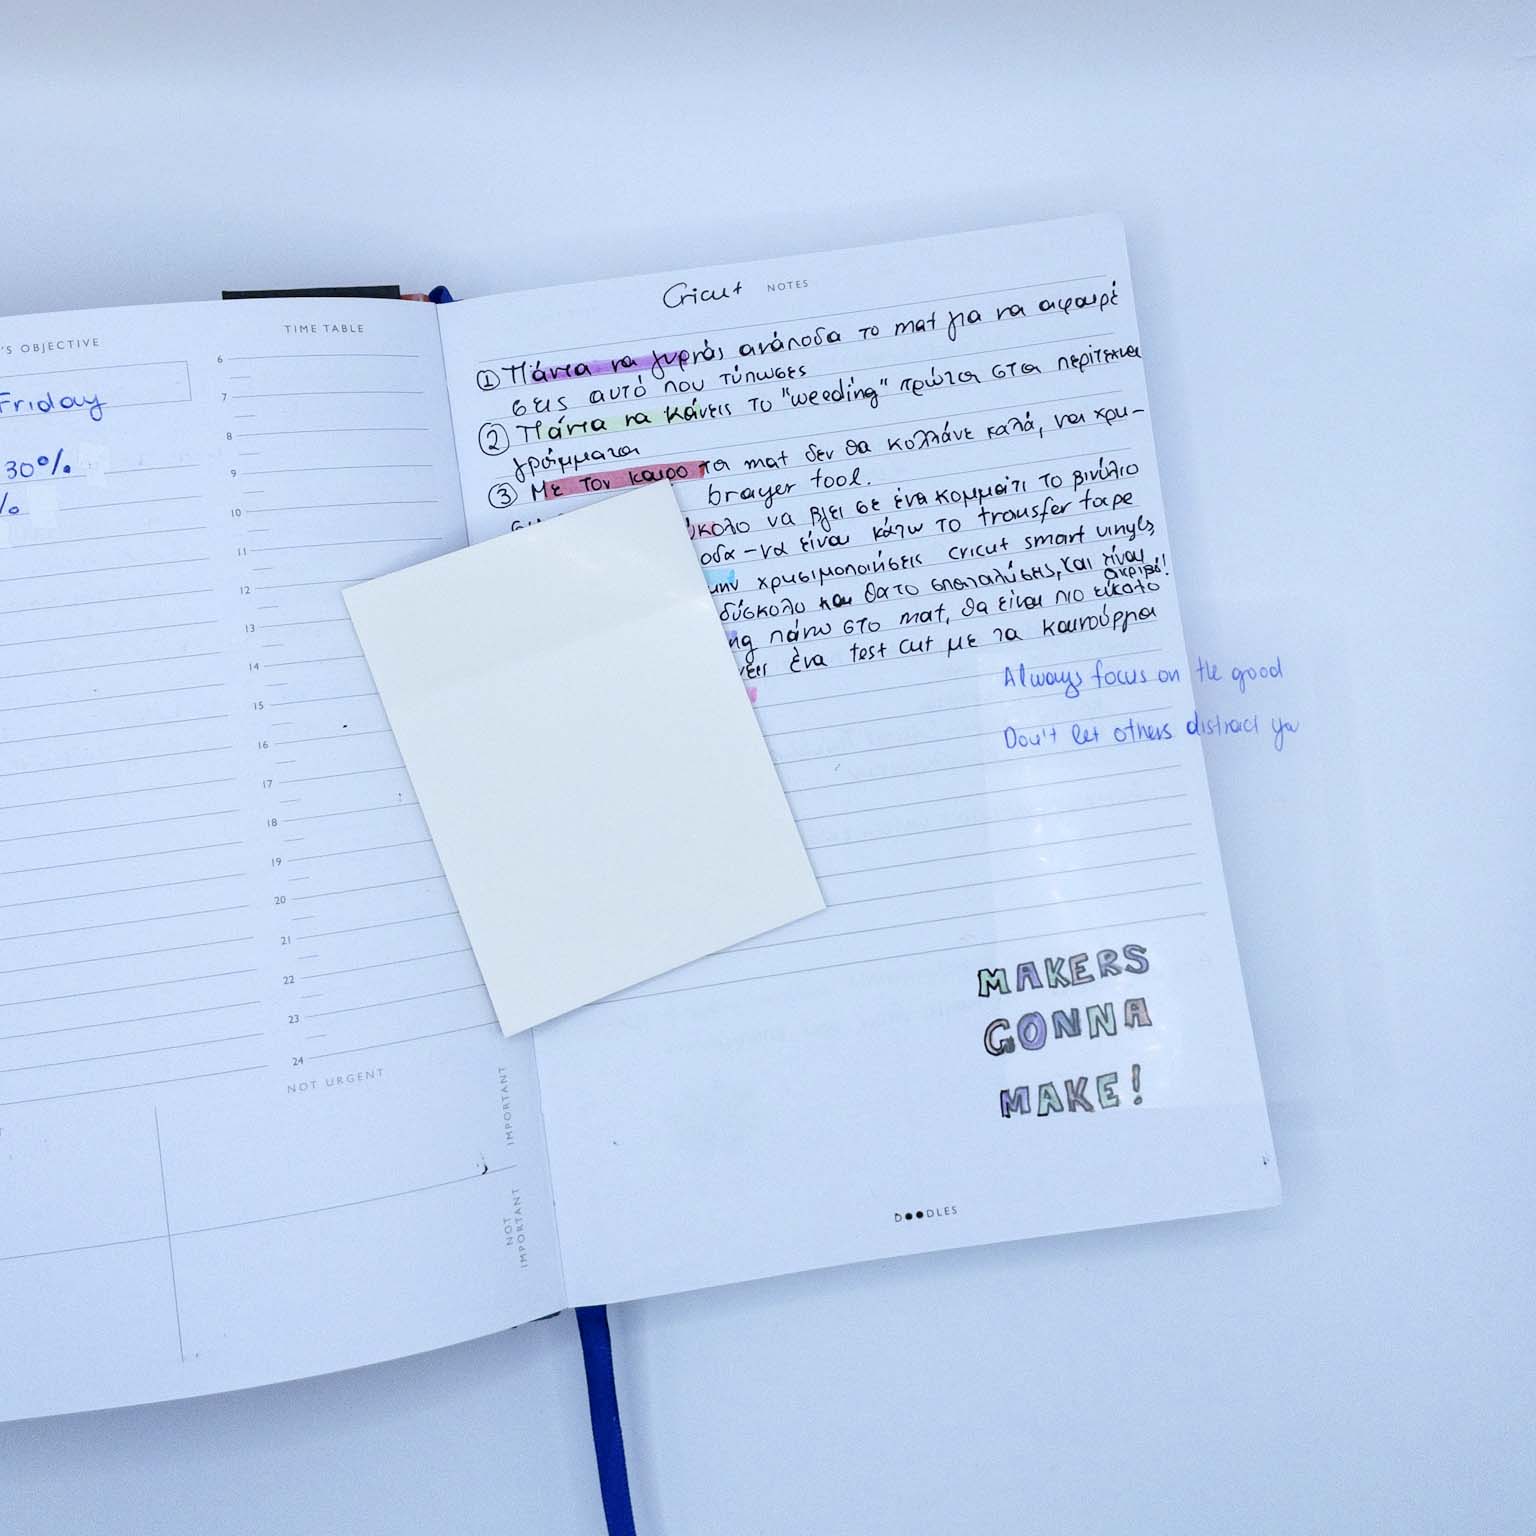 'S OBJECTIVE
Friday
30%
%
TIME TABLE
6
7
8
9
10
11
12
13
14
15
16
17
18
19
20
21
22
23
24
NOT URGENT
IMPORTANT
NOT
IMPORTANT
Cricut NOTES
① Πάντα να γυρνάς ανάποδα το mat για να αφαιρέ
σεις αυτό που τύπωσες
② Πάντα να κάνεις το "weeding" πρώτα στα περίτεχνα
γράμματα
③ Με τον καιρο τα mat δεν θα κολλάνε καλά, να χρη-
brayer tool.
ύκολο να βγει σε ένα κομμάτι το βινύλιο
οδα - να είναι κάτω το transfer tape
μην χρησιμοποιήσεις cricut smart vinyls,
δύσκολο και θα το σπαταλήσεις, και είναι
ακριβά!
ng πάνω στο mat, θα είναι πιο εύκολο
νεις ένα test cut με τα καινούργια
Always focus on the good
Don't let others distract you
MAKERS
GONNA
MAKE!
DOODLES